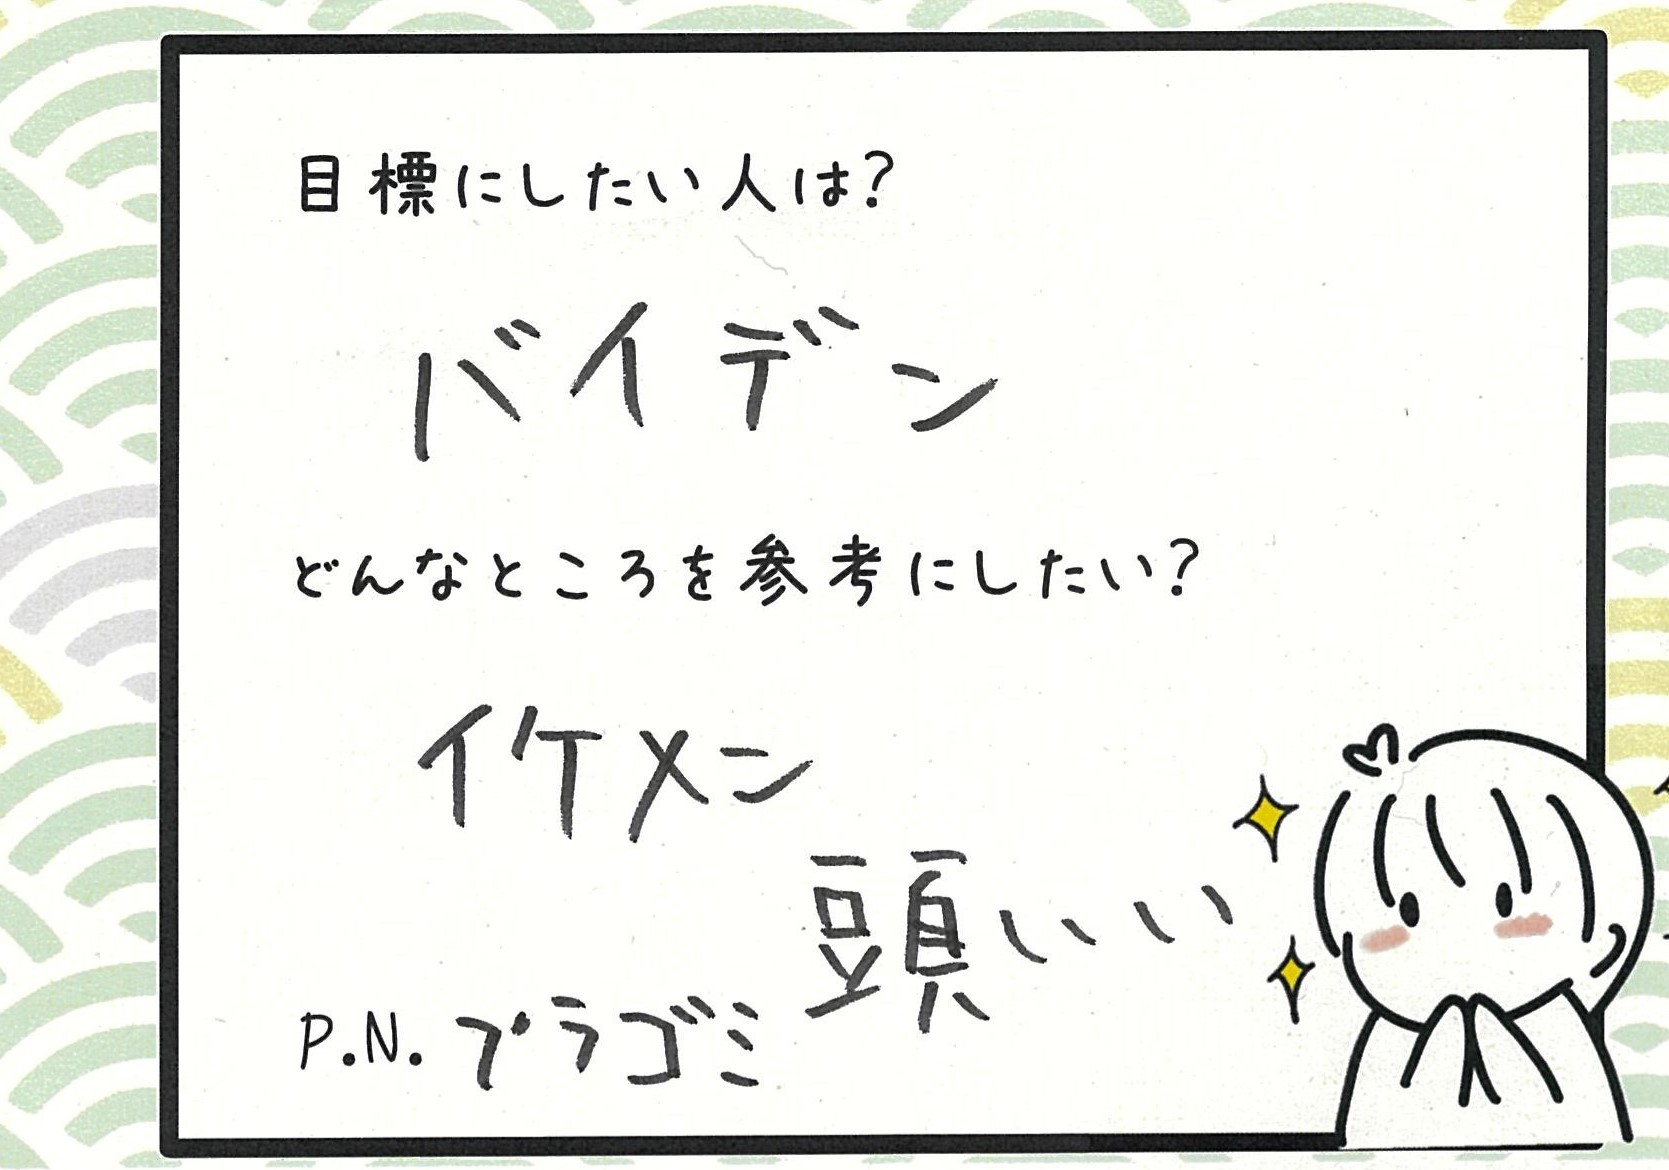 目標にしたい人は?
バイデン
どんなところを参考にしたい?
イケメン
頭いい
P.N. プラゴミ